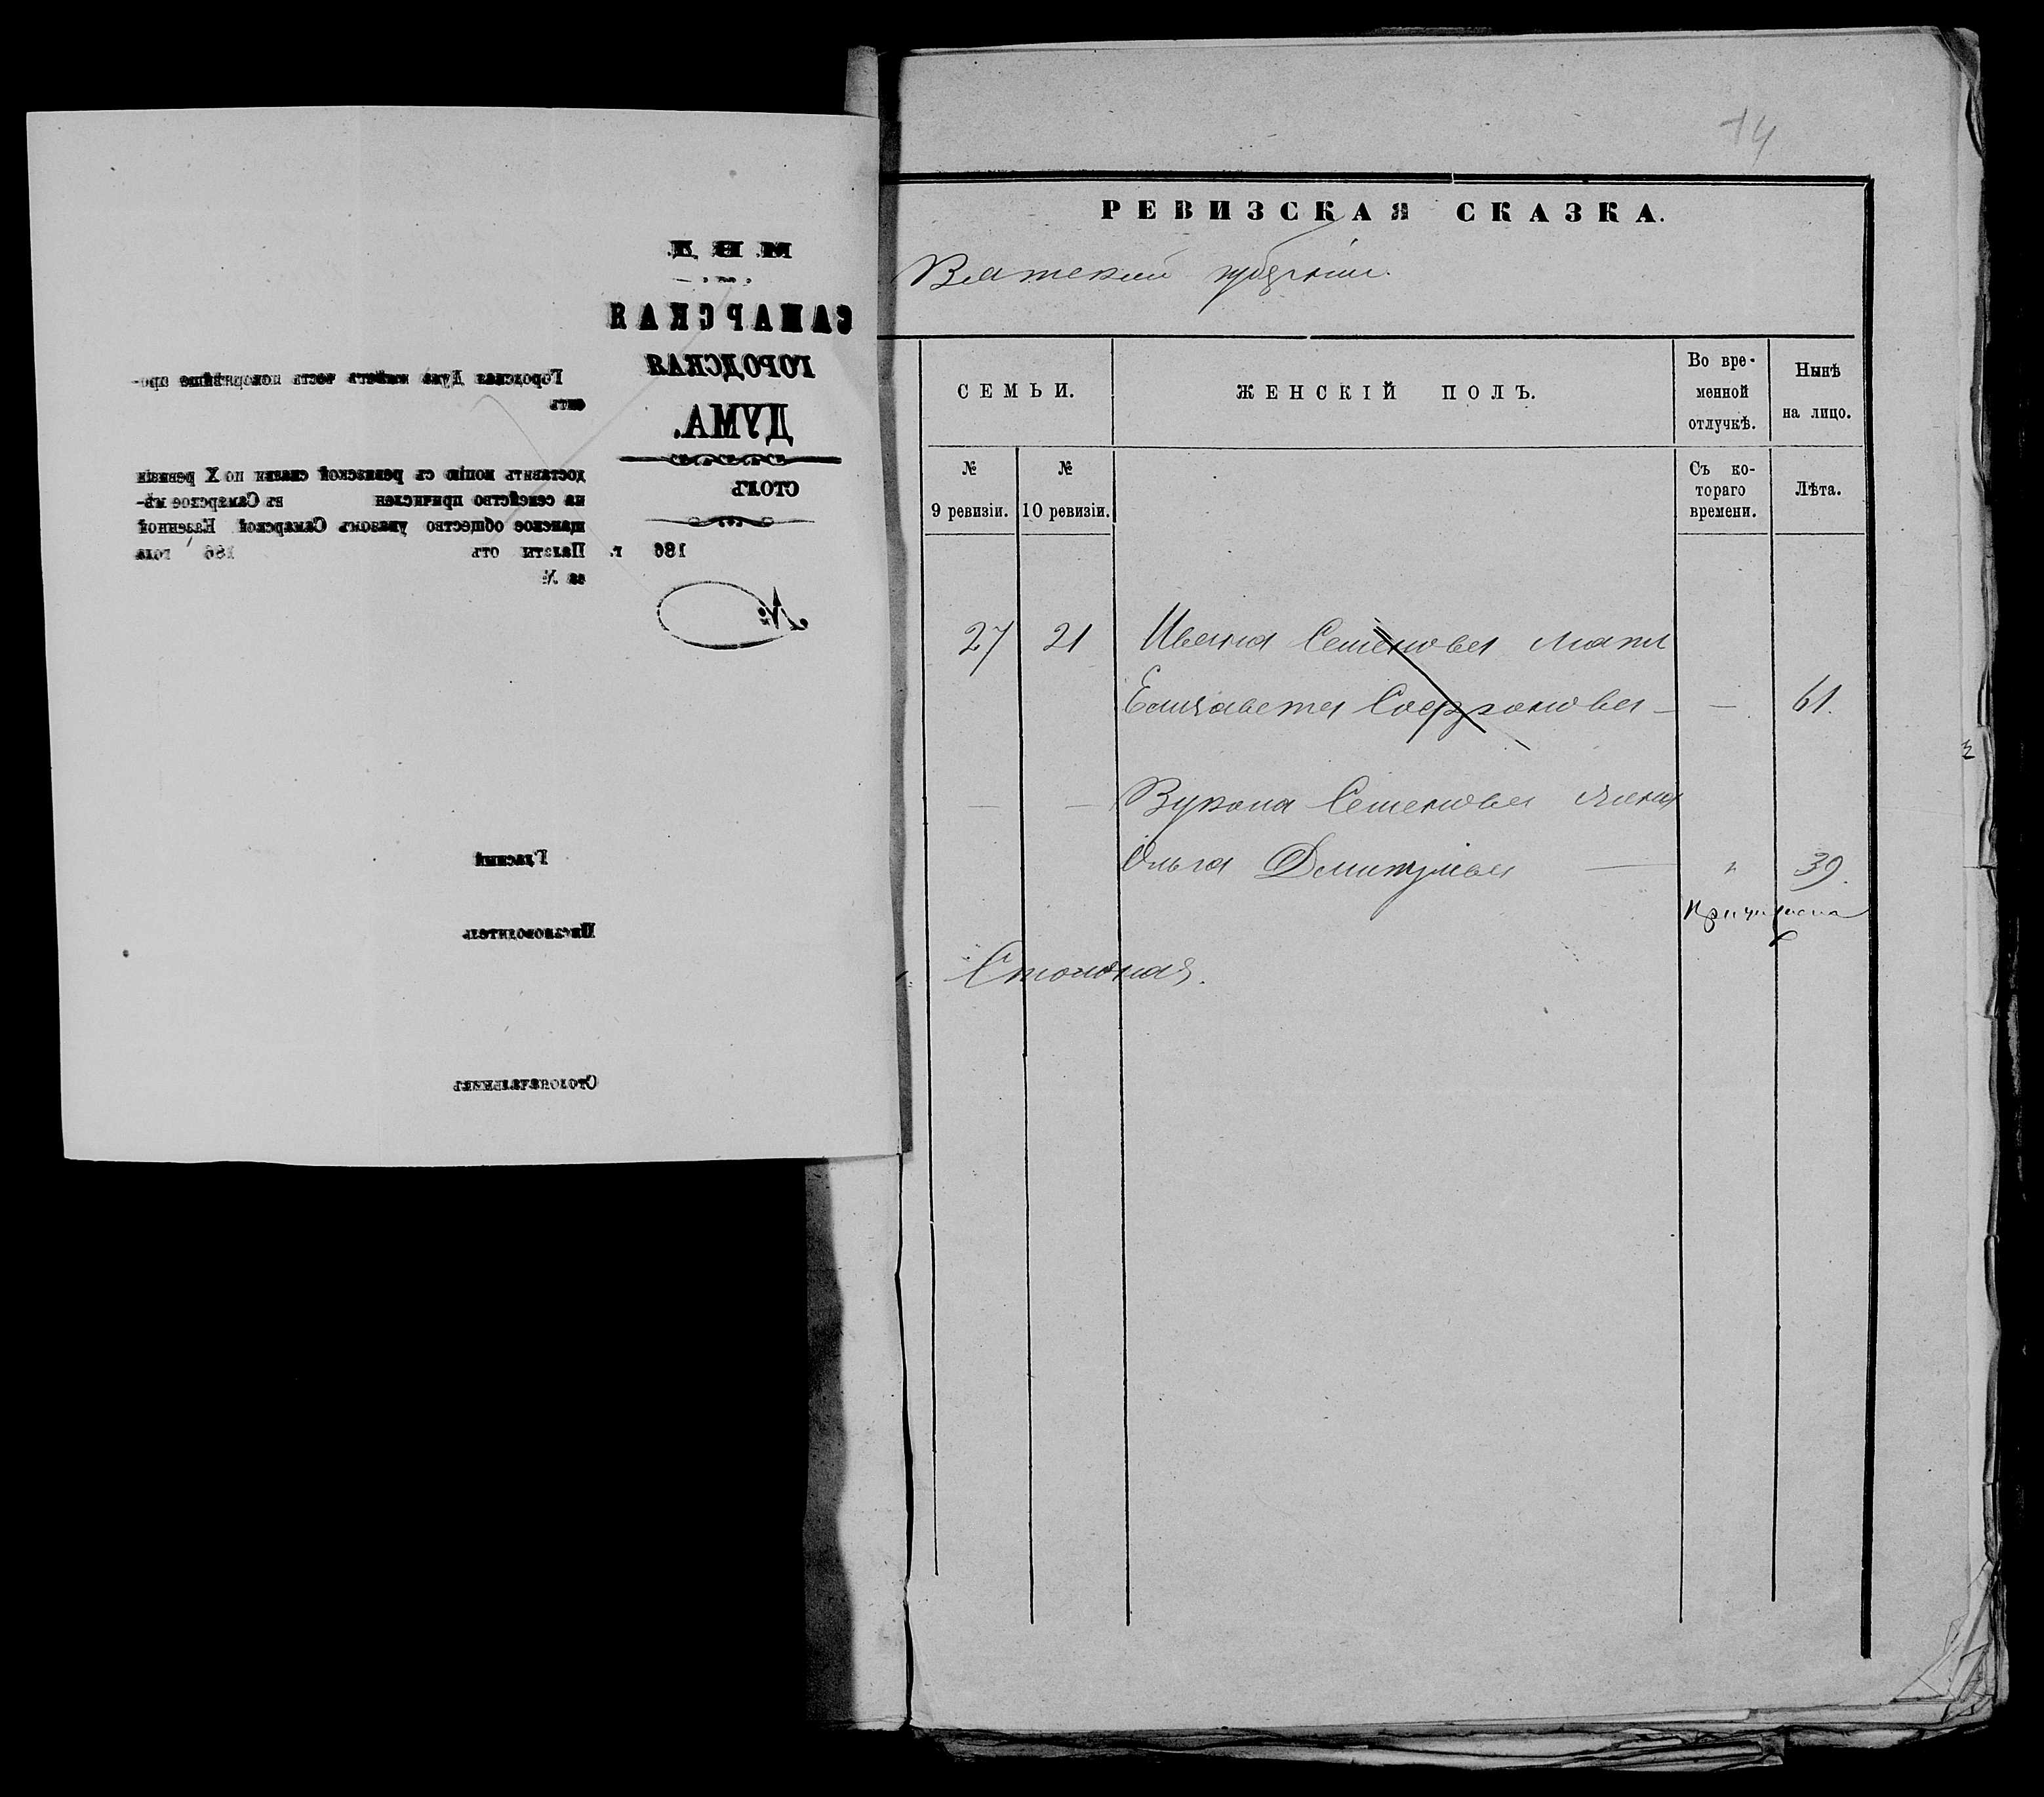 М. В. Д.
САМАРСКАЯ
ГОРОДСКАЯ
ДУМА.
СТОЛЪ
186 г.
№
Городская Дума имѣетъ честь покорнѣйше про-
сить
доставить копію съ ревизской сказки по X ревизіи
на семейство причислен въ Самарское мѣ-
щанское общество указомъ Самарской Казенной
Палаты отъ 186 года
за №
Гласный
Письмоводитель
Столоначальникъ
14
РЕВИЗСКАЯ СКАЗКА.
Вятской губерніи.
СЕМЬИ.
ЖЕНСКІЙ ПОЛЪ.
Во вре-
менной
отлучкѣ.
Нынѣ
на лицо.
№
9 ревизіи.
№
10 ревизіи.
Съ ко-
тораго
времени.
Лѣта.
27 21 Ивана Семенова мать
Елизавета Софронова — — 61.
— — Вукола Семенова жена
Ольга Дмитріева — " 39.